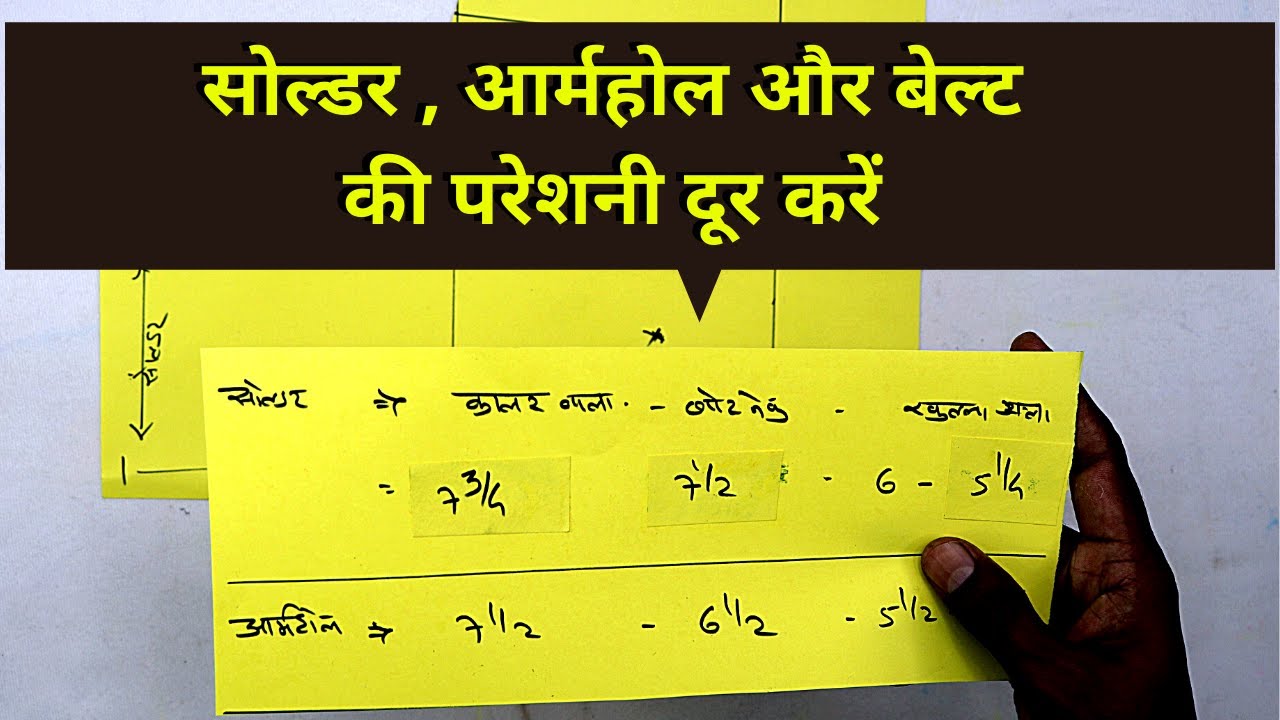 सोल्डर , आर्महोल और बेल्ट
की परेशनी दूर करें
सोल्डर
सोल्डर ⇒ कालर वाला. - बोट नेक - खुलना वाला
= 7 3/4 7 1/2 - 6 - 5 1/4
आर्महोल ⇒ 7 1/2 - 6 1/2 - 5 1/2